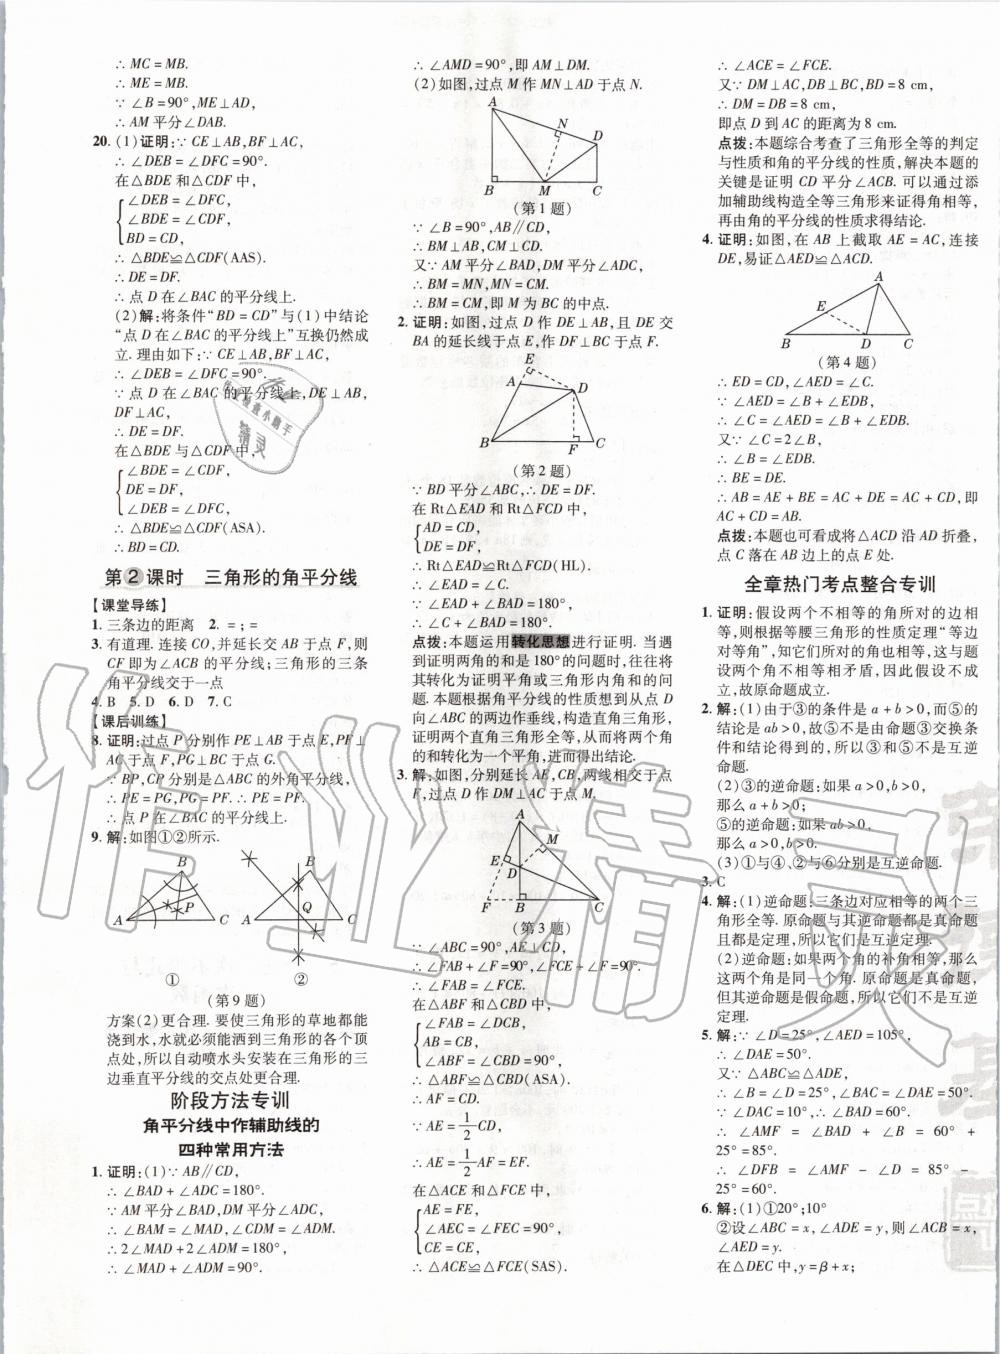 ∴MC=MB.
∴ME=MB.
∵∠B=90°,ME⊥AD,
∴AM平分∠DAB.
20. (1)证明:∵CE⊥AB,BF⊥AC,
∴∠DEB=∠DFC=90°.
在△BDE和△CDF中,
∠DEB=∠DFC,
∠BDE=∠CDF,
BD=CD,
∴△BDE≌△CDF(AAS).
∴DE=DF.
∴点D在∠BAC的平分线上.
(2)解:将条件“BD=CD”与(1)中结论
“点D在∠BAC的平分线上”互换仍然成
立.理由如下:∵CE⊥AB,BF⊥AC,
∴∠DEB=∠DFC=90°.
∵点D在∠BAC的平分线上,DE⊥AB,
DF⊥AC,
∴DE=DF.
在△BDE与△CDF中,
∠BDE=∠CDF,
DE=DF,
∠DEB=∠DFC,
∴△BDE≌△CDF(ASA).
∴BD=CD.
第2课时 三角形的角平分线
【课堂导练】
1. 三条边的距离 2. =;=
3. 有道理.连接CO,并延长交AB于点F,则
CF即为∠ACB的平分线;三角形的三条
角平分线交于一点
4. B 5. D 6. D 7. C
【课后训练】
8. 证明:过点P分别作PE⊥AB于点E,PF⊥
AC于点F,PG⊥BC于点G.
∵BP,CP分别是△ABC的外角平分线,
∴PE=PG,PG=PF.∴PE=PF.
∴点P在∠BAC的平分线上.
9. 解:如图①②所示.
B B
P
A C A Q C
① ②
(第9题)
方案(2)更合理.要使三角形的草地都能
浇到水,水就必须能洒到三角形的各个顶
点处,所以自动喷水头安装在三角形的三
边垂直平分线的交点处更合理.
阶段方法专训
角平分线中作辅助线的
四种常用方法
1. 证明:(1)∵AB∥CD,
∴∠BAD+∠ADC=180°.
∵AM平分∠BAD,DM平分∠ADC,
∴∠BAM=∠MAD,∠CDM=∠ADM.
∴2∠MAD+2∠ADM=180°,
∴∠MAD+∠ADM=90°.
∴∠AMD=90°,即AM⊥DM.
(2)如图,过点M作MN⊥AD于点N.
A
N
D
B M C
(第1题)
∵∠B=90°,AB∥CD,
∴BM⊥AB,CM⊥CD.
又∵AM平分∠BAD,DM平分∠ADC,
∴BM=MN,MN=CM.
∴BM=CM,即M为BC的中点.
2. 证明:如图,过点D作DE⊥AB,且DE交
BA的延长线于点E,DF⊥BC于点F.
E
A D
B F C
(第2题)
∵BD平分∠ABC,∴DE=DF.
在Rt△EAD和Rt△FCD中,
AD=CD,
DE=DF,
∴Rt△EAD≌Rt△FCD(HL).
∴∠EAD=∠C.
∵∠EAD+∠BAD=180°,
∴∠C+∠BAD=180°.
点拨:本题运用转化思想进行证明.当遇
到证明两角的和是180°的问题时,往往将
其转化为证明平角或三角形内角和的问
题.本题根据角平分线的性质想到从点D
向∠ABC的两边作垂线,构造直角三角形,
证明两个直角三角形全等,从而将两个角
的和转化为一个平角,进而得出结论.
3. 解:如图,分别延长AE,CB,两线相交于点
F,过点D作DM⊥AC于点M.
A
M
E
D
F B C
(第3题)
∵∠ABC=90°,AE⊥CD,
∴∠FAB+∠F=90°,∠FCE+∠F=90°.
∴∠FAB=∠FCE.
在△ABF和△CBD中,
∠FAB=∠DCB,
AB=CB,
∠ABF=∠CBD=90°,
∴△ABF≌△CBD(ASA).
∴AF=CD.
∵AE=1/2CD,
∴AE=1/2AF=EF.
在△ACE和△FCE中,
AE=FE,
∠AEC=∠FEC=90°,
CE=CE,
∴△ACE≌△FCE(SAS).
∴∠ACE=∠FCE.
又∵DM⊥AC,DB⊥BC,BD=8 cm,
∴DM=DB=8 cm,
即点D到AC的距离为8 cm.
点拨:本题综合考查了三角形全等的判定
与性质和角的平分线的性质,解决本题的
关键是证明CD平分∠ACB.可以通过添
加辅助线构造全等三角形来证得角相等,
再由角的平分线的性质求得结论.
4. 证明:如图,在AB上截取AE=AC,连接
DE,易证△AED≌△ACD.
A
E
B D C
(第4题)
∴ED=CD,∠AED=∠C.
∵∠AED=∠B+∠EDB,
∴∠C=∠AED=∠B+∠EDB.
又∵∠C=2∠B,
∴∠B=∠EDB.
∴BE=DE.
∴AB=AE+BE=AC+DE=AC+CD,即
AC+CD=AB.
点拨:本题也可看成将△ACD沿AD折叠,
点C落在AB边上的点E处.
全章热门考点整合专训
1. 证明:假设两个不相等的角所对的边相
等,则根据等腰三角形的性质定理“等边
对等角”,知它们所对的角也相等,这与题
设两个角不相等相矛盾,因此假设不成
立,故原命题成立.
2. 解:(1)由于③的条件是a+b>0,而⑤的
结论是ab>0,故⑤不是由命题③交换条
件和结论得到的,所以③和⑤不是互逆
命题.
(2)③的逆命题:如果a>0,b>0,
那么a+b>0;
⑤的逆命题:如果ab>0,
那么a>0,b>0.
(3)①与④、②与⑥分别是互逆命题.
3. C
4. 解:(1)逆命题:三条边对应相等的两个三
角形全等.原命题与其逆命题都是真命题
且都是定理,所以它们是互逆定理.
(2)逆命题:如果两个角的补角相等,那么
这两个角是同一个角.原命题是真命题,
但其逆命题是假命题,所以它们不是互逆
定理.
5. 解:∵∠D=25°,∠AED=105°,
∴∠DAE=50°.
又∵△ABC≌△ADE,
∴∠B=∠D=25°,∠BAC=∠DAE=50°.
∵∠DAC=10°,∴∠BAD=60°.
∴∠AMF=∠BAD+∠B=60°+
25°=85°.
∴∠DFB=∠AMF-∠D=85°-
25°=60°.
6. 解:(1)①20°;10°
②设∠ABC=x,∠ADE=y,则∠ACB=x,
∠AED=y.
在△DEC中,y=β+x;
作业精灵